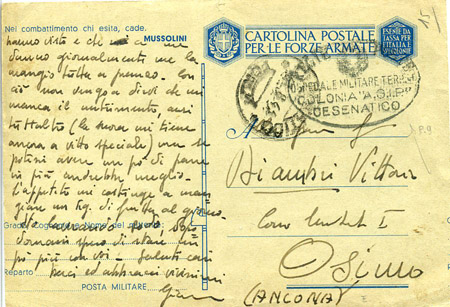 Nei combattimenti chi esita, cade.
MUSSOLINI
hanno visto e che ci
danno giornalmente me la
mangio tutta a pranzo. Con
ciò non vengo a dirvi che mi
manca il nutrimento, anzi
tutt'altro (la sera mi tiene
ancora a vitto speciale) ma se
potessi avere un po' di pane
in più andrebbe meglio.
L'appetito mi costringe a man
giare un kg. di frutta al giorno.
domani spero di stare un
po' più con voi. Saluti cari
baci ed abbracci vicinissimi
Grado, Cognome, Nome del
Reparto
POSTA MILITARE
CARTOLINA POSTALE
PER LE FORZE ARMATE
ESENTE DA
TASSA PER
L'ITALIA E
SPEDALE MILITARE TERR
COLONIA "A.G.I.P"
CESENATICO
P.9
Vittor
Corso I
Osimo
(ANCONA)